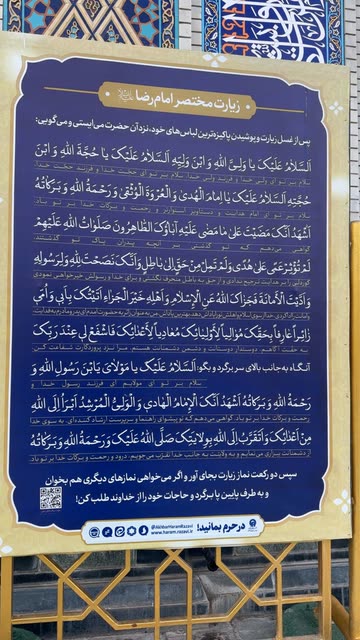 زیارت مختصر امام رضا
پس از غسل زیارت و پوشیدن پاکیزه‌ترین لباس‌های خود، نزد آن حضرت می‌ایستی و می‌گویی:
اَلسَّلامُ عَلَیْکَ یا وَلِیَّ اللهِ وَ ابْنَ وَلِیِّهِ اَلسَّلامُ عَلَیْکَ یا حُجَّةَ اللهِ وَ ابْنَ
سلام بر تو ای ولی خدا و فرزند ولی خدا، سلام بر تو ای حجت خدا و فرزند حجت خدا،
حُجَّتِهِ اَلسَّلامُ عَلَیْکَ یا اِمامَ الْهُدیٰ وَ الْعُرْوَةَ الْوُثْقیٰ وَ رَحْمَةُ اللهِ وَ بَرَکاتُهُ
سلام بر تو ای امام هدایت و دستاویز استوارتر و رحمت و برکات خدا بر تو باد.
اَشْهَدُ اَنَّکَ مَضَیْتَ عَلیٰ ما مَضیٰ عَلَیْهِ آباؤُکَ الطّاهِرُونَ صَلَواتُ اللهِ عَلَیْهِمْ
لَمْ تُؤْثِرْ عَمیً عَلیٰ هُدیً وَ لَمْ تَمِلْ مِنْ حَقٍّ اِلیٰ باطِلٍ وَ اَنَّکَ نَصَحْتَ لِلّٰهِ وَ لِرَسُولِهِ
وَ اَدَّیْتَ الْاَمانَةَ فَجَزاکَ اللهُ عَنِ الْاِسْلامِ وَ اَهْلِهِ خَیْرَ الْجَزاءِ اَتَیْتُکَ بِاَبی وَ اُمّی
زائِراً عارِفاً بِحَقِّکَ مُوالِیاً لِاَوْلِیائِکَ مُعادِیاً لِاَعْدائِکَ فَاشْفَعْ لی عِنْدَ رَبِّکَ
آنگاه به جانب بالای سر برگرد و بگو: اَلسَّلامُ عَلَیْکَ یا مَوْلایَ یَا بْنَ رَسُولِ اللهِ وَ
سلام بر تو ای مولایم ای فرزند رسول خدا و
رَحْمَةُ اللهِ وَ بَرَکاتُهُ اَشْهَدُ اَنَّکَ الْاِمامُ الْهادی وَ الْوَلِیُّ الْمُرْشِدُ اَبْرَأُ اِلَی اللهِ
مِنْ اَعْدائِکَ وَ اَتَقَرَّبُ اِلَی اللهِ بِوِلایَتِکَ صَلَّی اللهُ عَلَیْکَ وَ رَحْمَةُ اللهِ وَ بَرَکاتُهُ
سپس دو رکعت نماز زیارت بجای آور و اگر می‌خواهی نمازهای دیگری هم بخوان
و به طرف پایین پا برگرد و حاجات خود را از خداوند طلب کن!
در حرم بمانید!
@AkhbarHaramRazavi
www.haram.razavi.ir